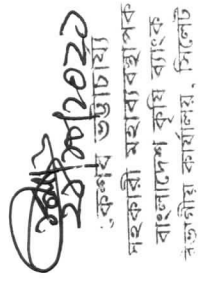 ২৮/১০/২০২০
কেশব ভট্টাচার্য্য
সহকারী মহাব্যবস্থাপক
বাংলাদেশ কৃষি ব্যাংক
বিভাগীয় কার্যালয়, সিলেট